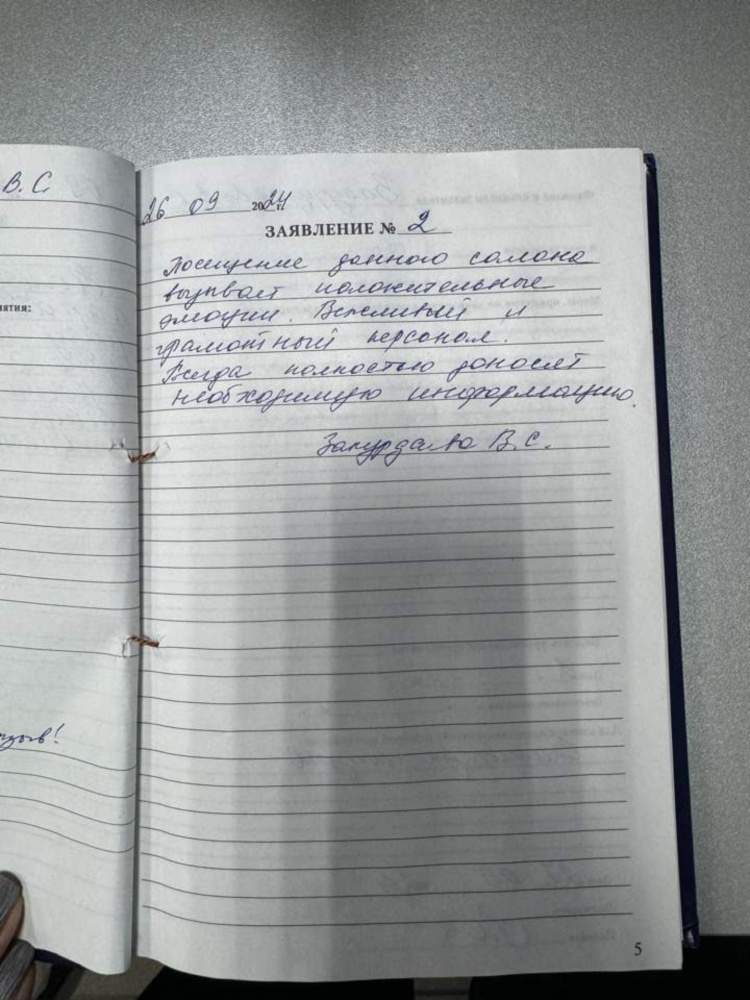 В. С.
иятия:
26 09 2024 г.
ЗАЯВЛЕНИЕ № 2
Посещение данного салона
вызывает положительные
эмоции. Вежливый и
грамотный персонал.
Всегда полностью доносят
необходимую информацию.
В.С.
5